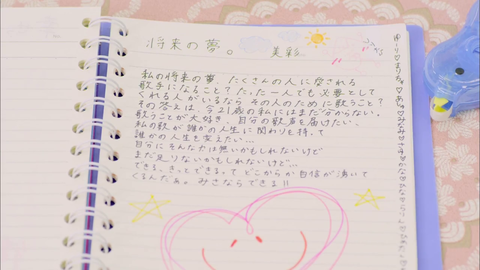 将来の夢。 美彩
私の将来の夢 たくさんの人に愛される
歌手になること？たった一人でも必要として
くれる人がいるなら その人のために歌うこと？
その答えは、今21歳の私にはまだ分からない。
歌うことが大好き。自分の歌声を届けたい。
私の歌が誰かの人生に関わりを持って
誰かの人生を変えたい…
自分にそんな力は無いかもしれないけど
まだ足りないかもしれないけど…
できる、きっとできるって どこからか自信が湧いて
くるんだぁ。みさならできる!!